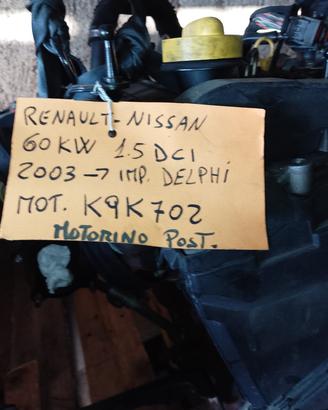 RENAULT-NISSAN
60KW 1.5 DCI
2003 → IMP. DELPHI
MOT. K9K702
MOTORINO POST.